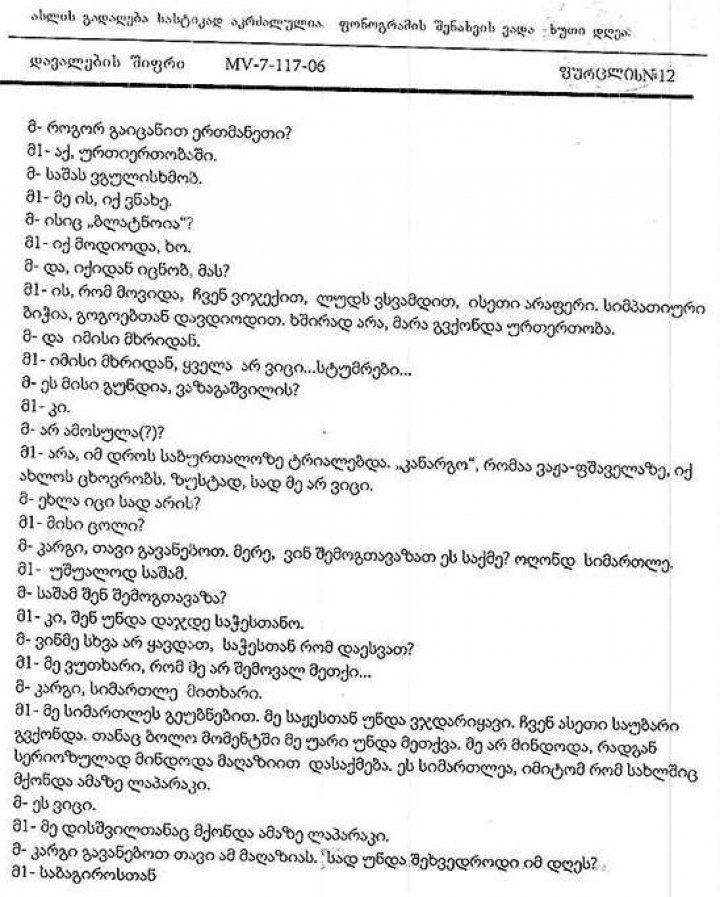 ასლის გადაღება სასტიკად აკრძალულია. ფონოგრამის შენახვის ვადა ხუთი დღეა.
დავალების შიფრი MV-7-117-06 ფურცლის№12
მ- როგორ გაიცანით ერთმანეთი?
მ1- აქ, ურთიერთობაში.
მ- საშას ვგულისხმობ.
მ1- მე ის, იქ ვნახე.
მ- ისიც „ბლატნოია“?
მ1- იქ მოდიოდა, ხო.
მ- და, იქიდან იცნობ, მას?
მ1- ის, რომ მოვიდა, ჩვენ ვიჯექით, ლუდს ვსვამდით, ისეთი არაფერი. სიმპათიური
ბიჭია, გოგოებთან დავდიოდით. ხშირად არა, მარა გვქონდა ურთერთობა.
მ- და იმისი მხრიდან.
მ1- იმისი მხრიდან, ყველა არ ვიცი...სტუმრები...
მ- ეს მისი გუნდია, ვაზაგაშვილის?
მ1- კი.
მ- არ ამოსულა(?)?
მ1- არა, იმ დროს საბურთალოზე ტრიალებდა. „კანარგო“, რომაა ვაჟა-ფშაველაზე, იქ
ახლოს ცხოვრობს. ზუსტად, სად მე არ ვიცი.
მ- ეხლა იცი სად არის?
მ1- მისი ცოლი?
მ- კარგი, თავი გავანებოთ. მერე, ვინ შემოგთავაზათ ეს საქმე? ოღონდ სიმართლე.
მ1- უშუალოდ საშამ.
მ- საშამ შენ შემოგთავაზა?
მ1- კი, შენ უნდა დაჯდე საჭესთანო.
მ- ვინმე სხვა არ ყავდათ, საჭესთან რომ დაესვათ?
მ1- მე ვუთხარი, რომ მე არ შემოვალ მეთქი...
მ- კარგი, სიმართლე მითხარი.
მ1- მე სიმართლეს გეუბნებით. მე საჟესთან უნდა ვჯდარიყავი. ჩვენ ასეთი საუბარი
გვქონდა. თანაც ბოლო მომენტში მე უარი უნდა მეთქვა. მე არ მინდოდა, რადგან
სერიოზულად მინდოდა მაღაზიით დასაქმება. ეს სიმართლეა, იმიტომ რომ სახლშიც
მქონდა ამაზე ლაპარაკი.
მ- ეს ვიცი.
მ1- მე დისშვილთანაც მქონდა ამაზე ლაპარაკი.
მ- კარგი გავანებოთ თავი ამ მაღაზიას. სად უნდა შეხვედროდი იმ დღეს?
მ1- საბაგიროსთან